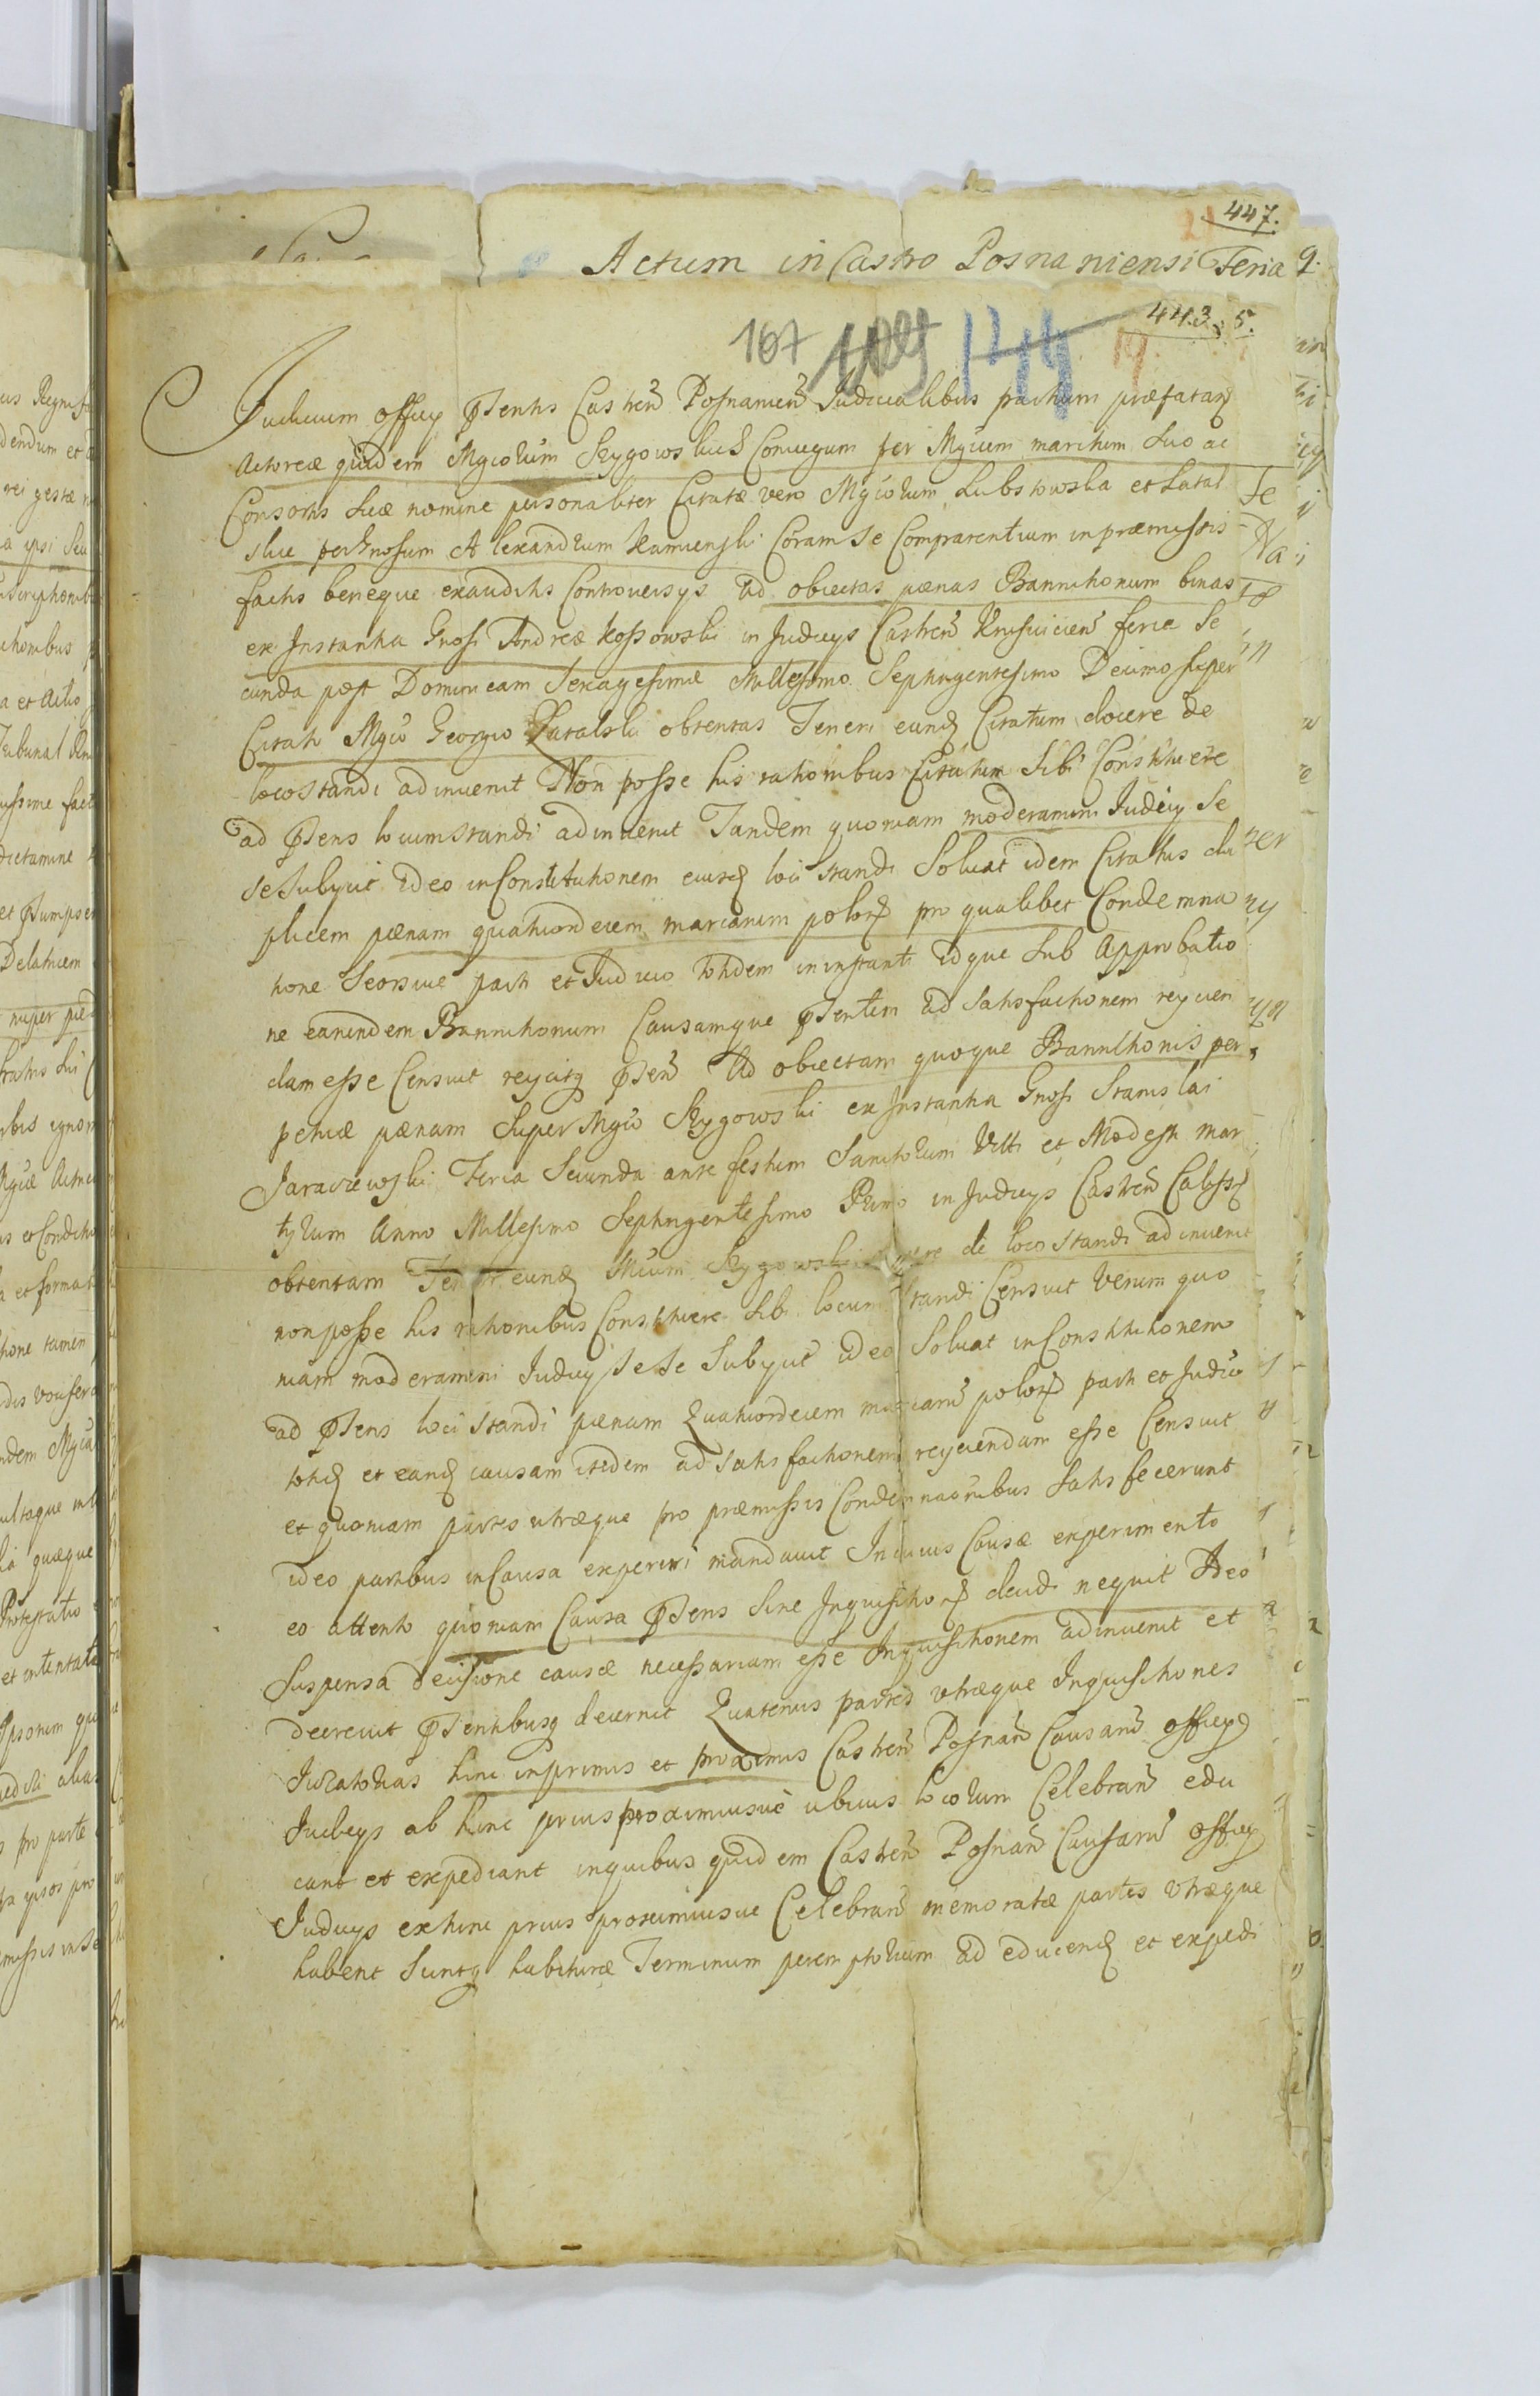 447.
Actum in Castro Posnaniensi Feria
443. 5.
167 144 19
Judicium officij Pntis Castren Posnanien Judicialibus partium præfatar
Actoreæ quidem Mgcorum Rygowskich Coniugum per Mgcum maritum suo ac
Consortis suæ nomine personaliter Citatæ vero Mgcorum Lubstowska et Latal
skie per Gnosum Alexandrum Kamienski Coram se Comparentium in præmissis
factis beneque exauditis Controversijs Ad obiectas pænas Bannitionum binas
ex Instantia Gnosi Andreæ Kossowski in Judicijs Castren Crusvicien ferie Se
cunda post Dominicam Sexagesimæ Millesimo Septingentesimo Decimo super
Citato Mgco Georgio Latalski obtentas Teneri eund Citatum docere de
loco standi adinvenit Non posse his rationibus Citatum Sibi Constituere
ad Psens locum standi adinvenit Tandem quoniam moderamini Judicij Se
se subijcit ideo in Constitutionem eiusd loci standi Solvat idem Citatus du
plicem pænam quatuordecim marcarum polon pro qualibet Condemna
tione Seorsive parti et Judicio totidem in instanti idque sub Approbatio
ne earundem Bannitionum Causamque Psentem ad Satisfactionem reijcien
dam esse Censuit reijcitq Psen Ad obiectam quoque Bannitionis per
petuæ pænam super Mgco Rygowski ex Instantia Gnosi Stanislai
Jaraczewski Feria Secunda ante festum Sanctorum Viti et Modesti mar
tyrum Anno Millesimo Septingentesimo Primo in Judicijs Castren Calissi
obtentam Teneri eund Mcum Rygowski docere de loco standi adinvenit
non posse his rationibus Constituere sibi locum standi Censuit Verum quo
niam moderamini Judicij sese Subijcit ideo Solvat in Constitutionem
ad Psens loci standi pænam Quatuordecim marcarum polon parti et Judicio
totid et eand causam itidem ad satisfactionem reijciendam esse Censuit
et quoniam partes utræque pro præmissis Condemnaonibus Satisfecerunt
ideo partibus in Causa experiri mandavit In cuius Causæ experimento
eo attento quoniam Causa Psens Sine Inquisitione decidi nequit Ideo
Suspensa decisione causæ necessariam esse Inquisitionem adinvenit et
decrevit Psentibusq decernit Quatenus partes utræque Inquisitiones
Juratorias hinc inprimis et proximis Castren Posnan Causarum officij
Judicijs ab hinc prius proximiusve ubivis locorum Celebran edu
cant et expediant in quibus quidem Castren Posnan Causarum officij
Judicijs ex hinc prius proximiusve Celebran memoratæ partes utræque
habent Suntq habituræ Terminum peremptorium ad educend et expedi